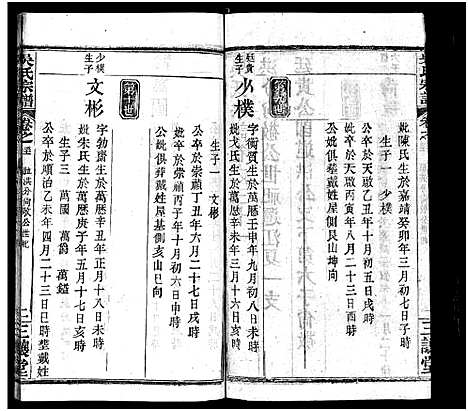 妣陳氏生於嘉靖癸卯年三月初七日子時
生子一 少樸
公卒於天啟乙丑年十月初五日戌時
妣卒於天啟丙寅年八月二十日未時
公妣俱塟戴姓屋側艮山坤向
第九世
廷貴生子
少樸
字衡質生於萬厯壬申年九月初八日寅時
妣戈氏生於萬厯辛未年三月十六日亥時
生子一 文彬
公卒於崇禎丁丑年六月二十七日戌時
妣卒於崇禎丙子年十月初六日申時
公妣俱葬戴姓屋基側亥山巳向
三讓堂
吳氏宗譜
第十世
少樸生子
文彬
字勃齋生於萬厯辛丑年正月十八日未時
妣朱氏生於萬厯庚子年五月十七日亥時
生子三 萬國 萬爵 萬鎰
公卒於順治乙未年四月二十三日時塟戴姓
三讓堂